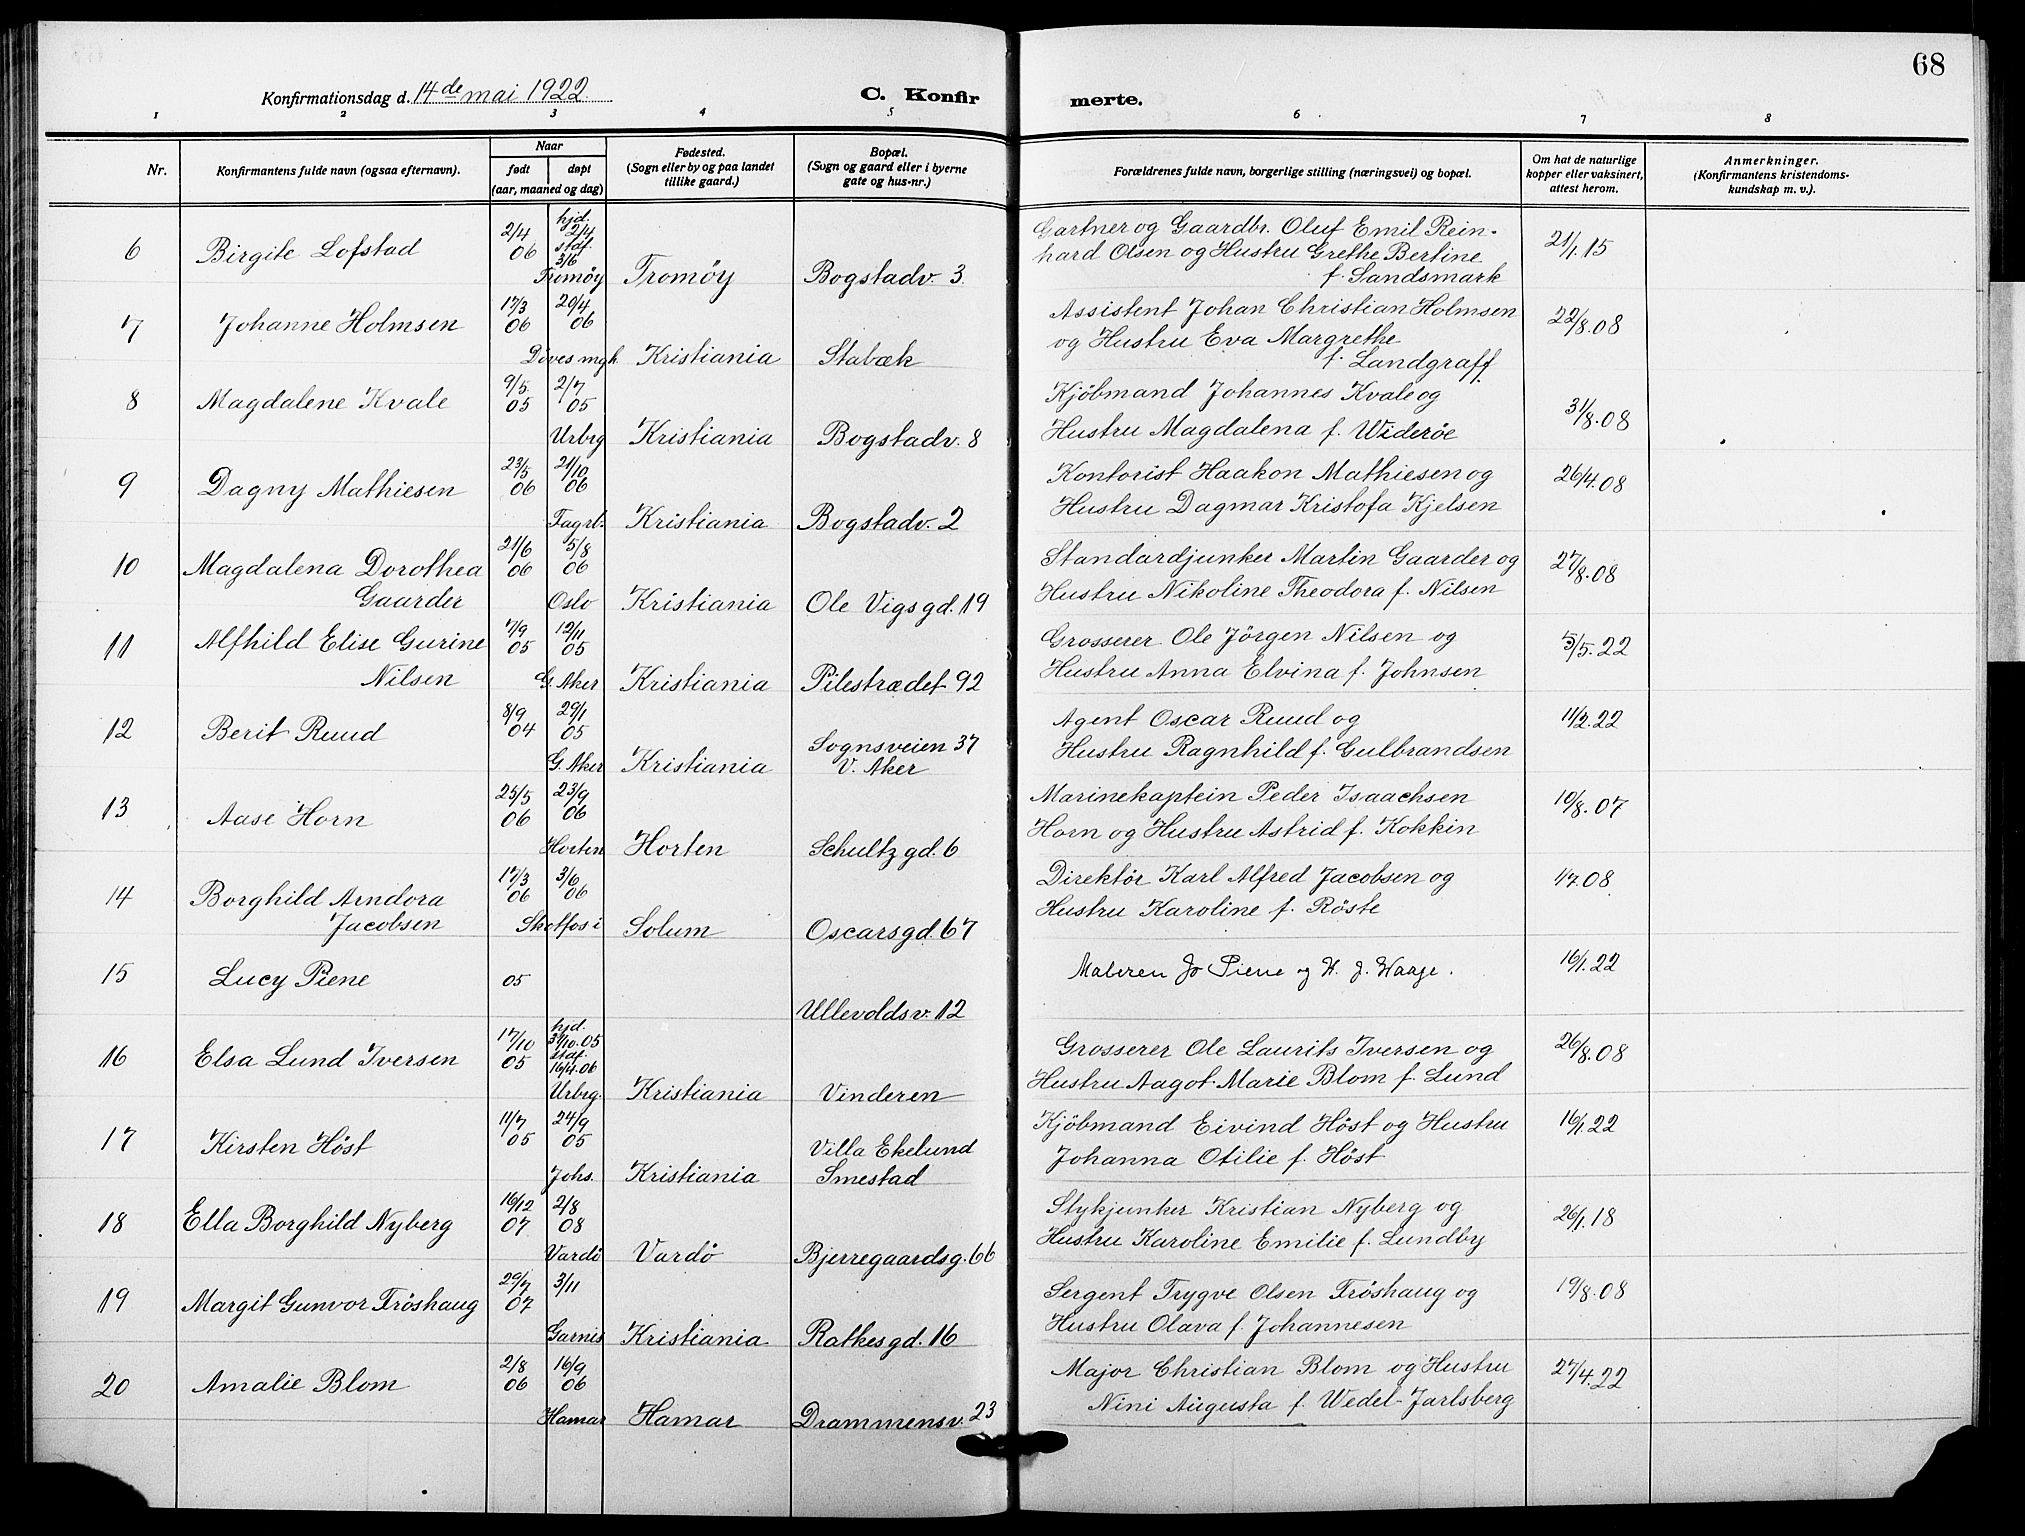 68
Konfirmationsdag d. 14de mai 1922.
C. Konfirmerte.
1 2 3 4 5 6 7 8
Nr.
Konfirmantens fulde navn (ogsaa efternavn).
Naar
født døpt
(aar, maaned og dag)
Fødested.
(Sogn eller by og paa landet
tillike gaard.)
Bopæl.
(Sogn og gaard eller i byerne
gate og hus-nr.)
Forældrenes fulde navn, borgerlige stilling (næringsvei) og bopæl.
Om hat de naturlige
kopper eller vaksinert,
attest herom.
Anmerkninger.
(Konfirmantens kristendoms-
kundskap m. v.).
6 Birgite Lofstad 2/4 06 hjd. 2/4 stdf. 3/6 Tromøy Tromøy Bogstadv. 3
Gartner og Gaardbr. Oluf Emil Rein-
hard Olsen og Hustru Grethe Bertine
f. Sandsmark
21/1.15
7 Johanne Holmsen 17/3 06 20/4 06 Døves mgh. Kristiania Stabæk
Assistent Johan Christian Holmsen
og Hustru Eva Margrethe
f. Landgraff
22/8.08
8 Magdalene Kvale 9/5 05 2/7 05 Urbrg Kristiania Bogstadv. 8
Kjöbmand Johannes Kvale og
Hustru Magdalena f. Widerøe
31/8.08
9 Dagny Mathiesen 23/5 06 21/10 06 Fagrb. Kristiania Bogstadv. 2
Kontorist Haakon Mathiesen og
Hustru Dagmar Kristofa Kjelsen
26/4.08
10 Magdalena Dorothea
Gaarder 21/6 06 5/8 06 Oslo Kristiania Ole Vigs gd. 19
Standardjunker Martin Gaarder og
Hustru Nikoline Theodora f. Nilsen
27/8.08
11 Alfhild Elise Gurine
Nilsen 7/9 05 12/11 05 G. Aker Kristiania Pilestrædet 92
Grosserer Ole Jörgen Nilsen og
Hustru Anna Elvina f. Johnsen
5/5.22
12 Berit Ruud 8/9 04 29/1 05 G. Aker Kristiania Sognsveien 37
V. Aker
Agent Oscar Ruud og
Hustru Ragnhild f. Gulbrandsen
11/2.22
13 Aase Horn 25/5 06 23/9 06 Horten Horten Schultz gd. 6
Marinekaptein Peder Isaachsen
Horn og Hustru Astrid f. Kokkin
10/8.07
14 Borghild Arndora
Jacobsen 17/3 06 3/6 06 Skotfos i Solum Oscarsgd. 67
Direktör Karl Alfred Jacobsen og
Hustru Karoline f. Röste
1/7.08
15 Lucy Piene 05 Ullevoldsv. 12
Maleren Jo Piene og H. J. Waage.
16/1.22
16 Elsa Lund Iversen 17/10 05 hjd. 31/10.05 staf. 16/4.06 Urbrg. Kristiania Vinderen
Grosserer Ole Laurits Iversen og
Hustru Aagot Marie Blom f. Lund
26/8.08
17 Kirsten Höst 11/7 05 24/9 05 Johs. Kristiania Villa Ekelund
Smestad
Kjöbmand Eivind Höst og Hustru
Johanna Otilie f. Höst
16/1.22
18 Ella Borghild Nyberg 16/12 07 2/8 08 Vardö Vardö Bjerregaardsg. 66
Stykjunker Kristian Nyberg og
Hustru Karoline Emilie f. Lundby
26/1.18
19 Margit Gunvor Fröshaug 29/7 07 3/11 Garnis Kristiania Ratkes gd. 16
Sergent Trygve Olsen Fröshaug og
Hustru Olava f. Johannesen
19/8.08
20 Amalie Blom 2/8 06 16/9 06 Hamar Hamar Drammensv. 23
Major Christian Blom og Hustru
Nini Augusta f. Wedel-Jarlsberg
27/4.22